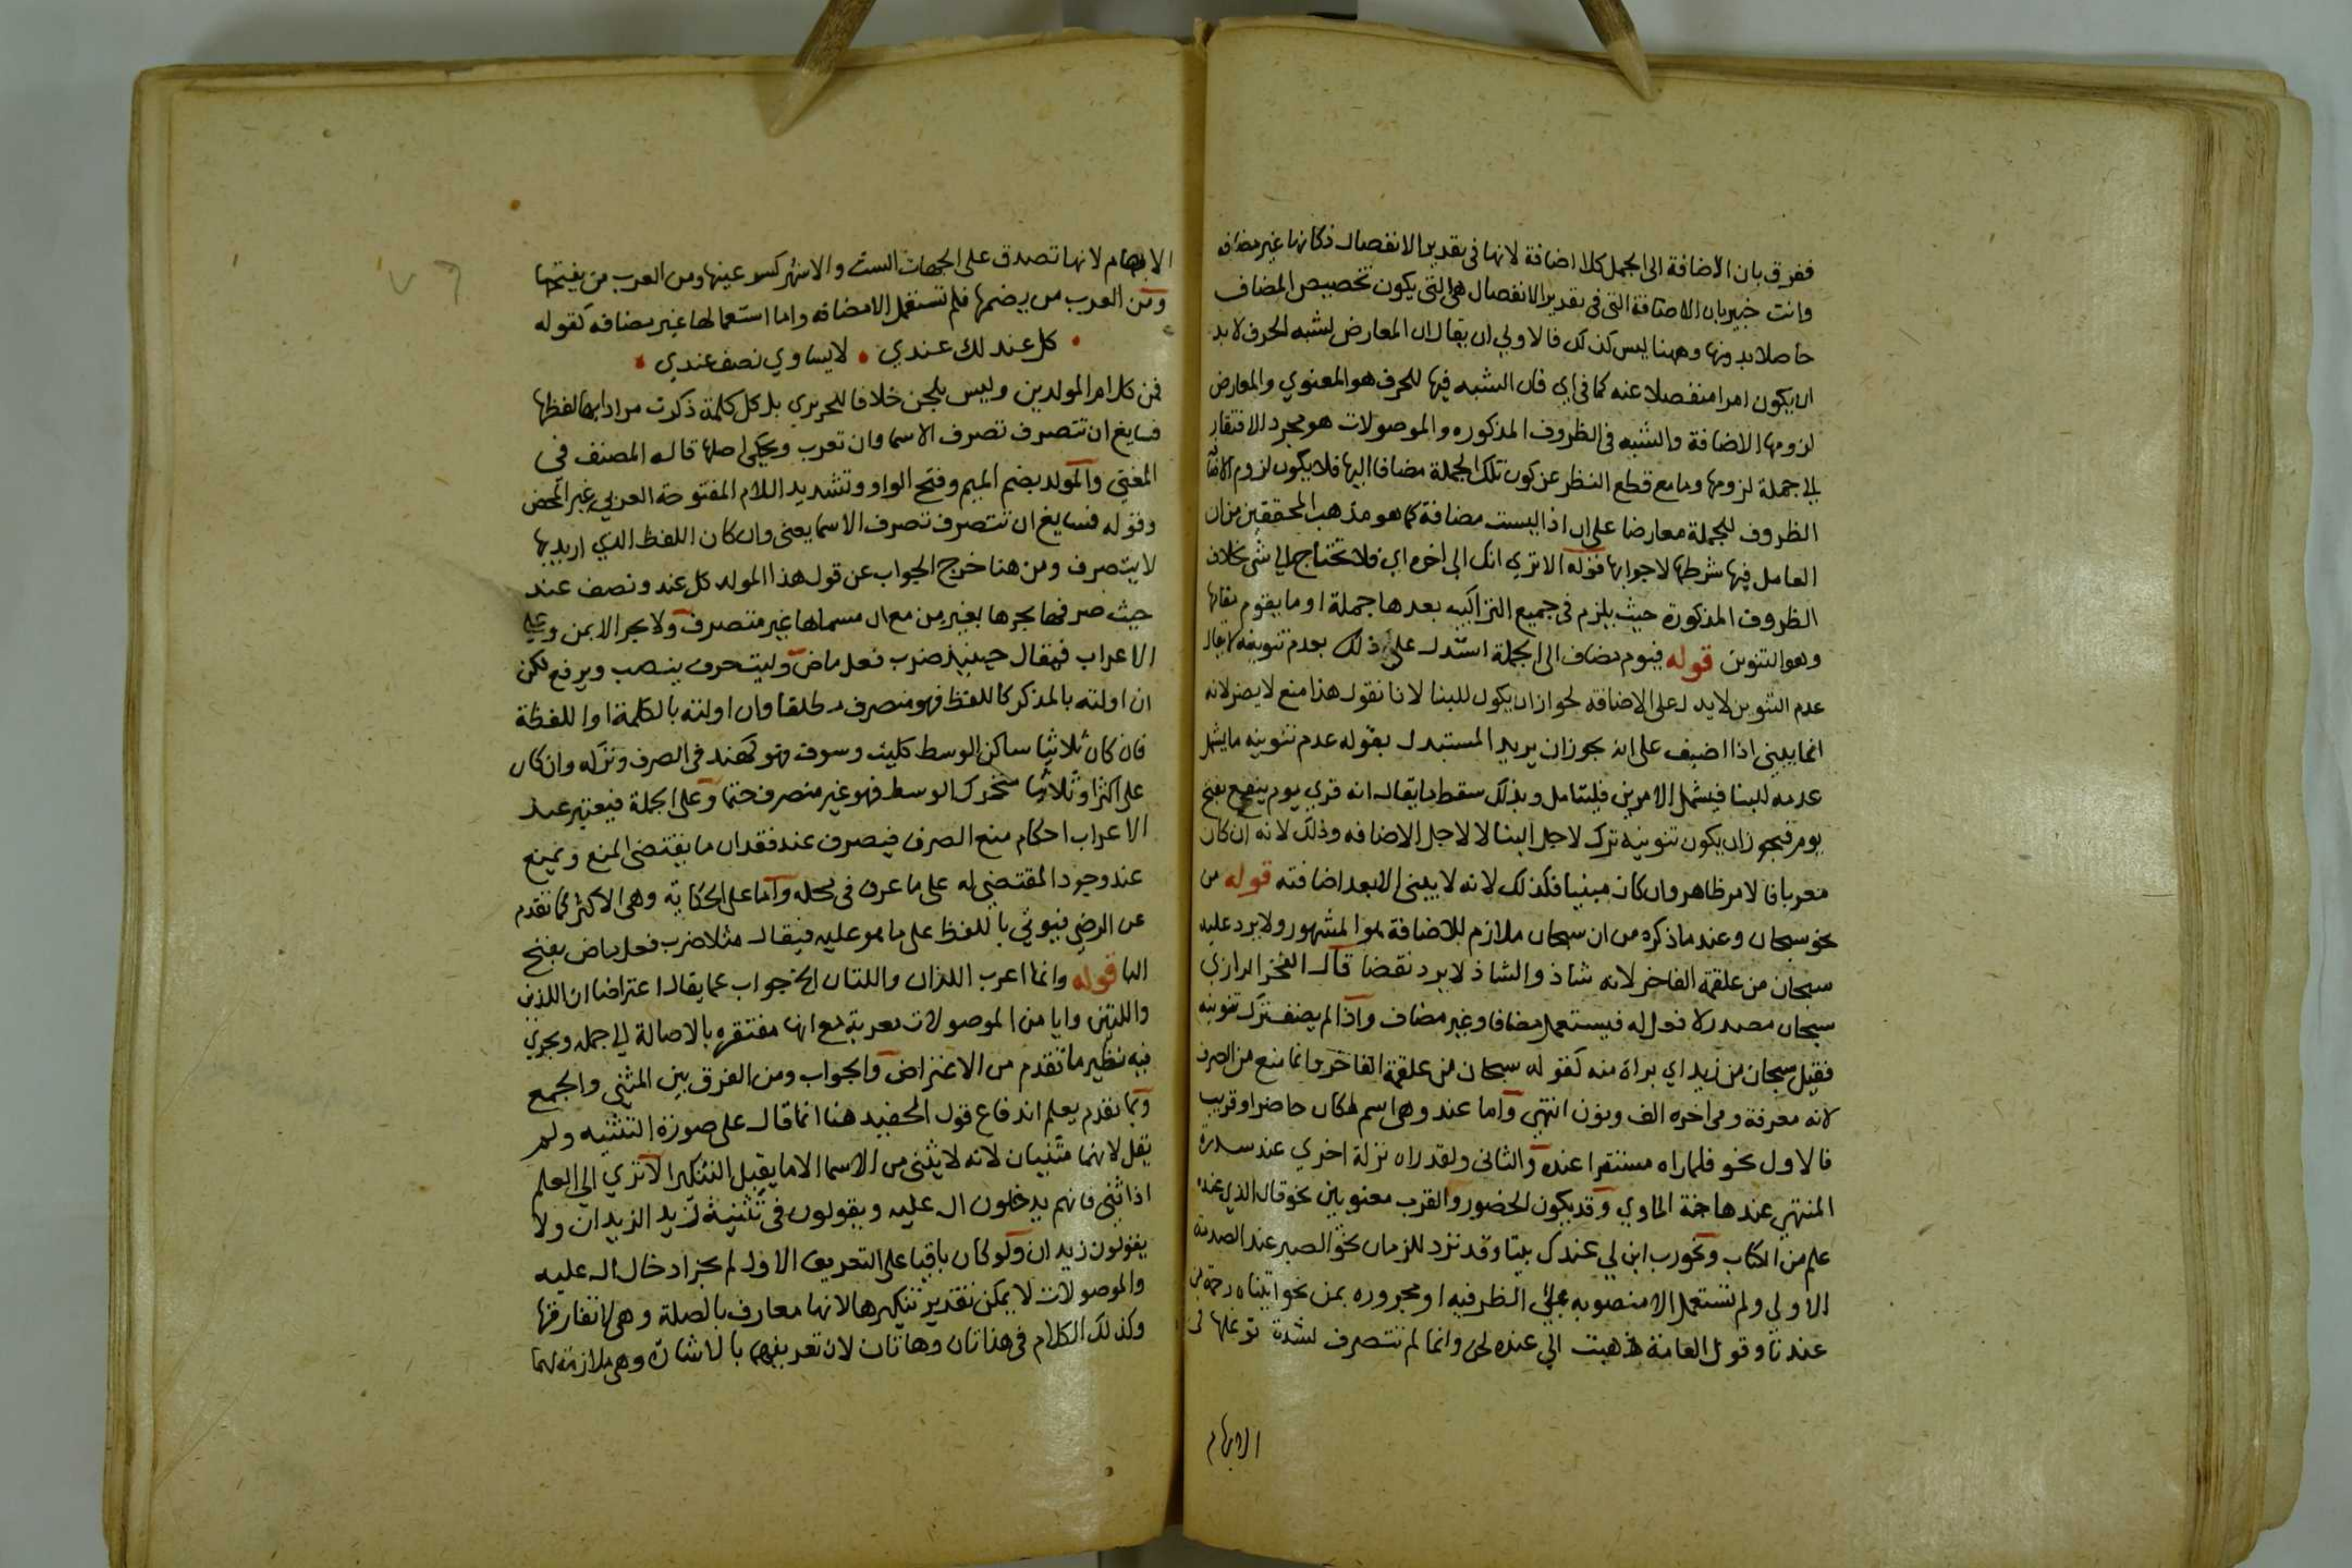 ففرق بان الاضافة الى الجمل كلا اضافة لانها فى تقدير الانفصال فكانها غير مضافه
وانت خبير بان الاضافة التى فى تقدير الانفصال هى التى يكون تخصيص المضاف
حاصلا بدونها وههنا ليس كذلك فالاولي ان يقال ان المعارض لشبه الحرف لا بد
ان يكون امرا منفصلا عنه كما فى اي فان الشبه فيها للحرف هو المعنوي والمعارض
لزومها الاضافة والشبه فى الظروف المذكوره والموصولات هو مجرد الافتقار
الى جملة لزومها وما مع قطع النظر عن كون تلك الجملة مضافا اليها فلا يكون لزوم الاضافة
الظروف للجملة معارضا على ان اذا ليست مضافة كما هو مذهب المحققين من ان
العامل فيها شرطها لا جوابها قوله الا تري انك الى اخره اي فلا تحتاج الى شى بخلاف
الظروف المذكورة حيث يلزم فى جميع التراكيب بعدها جملة او ما يقوم مقامها
وهو التنوين قوله فيوم مضاف الى الجملة استدل على ذلك بعدم تنوينه لا يقال
عدم التنوين لا يدل على الاضافة لجواز ان يكون للبنا لانا نقول هذا منع لا يضر لانه
انما يبنى اذا اضيف على انه يجوز ان يريد المستدل بقوله عدم تنوينه ما يشمل
عدمه للبنا فيشمل الامرين فليتامل وبذلك سقط ما يقال انه قري يوم ينفع بفتح
يوم فيجوز ان يكون تنوينه ترك لاجل البنا لا لاجل الاضافه وذلك لانه ان كان
معربا فالامر ظاهر وان كان مبنيا فكذلك لانه لا يبنى الا بعد اضافته قوله من
نحو سبحان وعند ما ذكره من ان سبحان ملازم للاضافة هو المشهور ولا يرد عليه
سبحان من علقمة الفاخر لانه شاذ والشاذ لا يرد نقضا قال الفخر الرازي
سبحان مصدر لا فعل له فيستعمل مضافا وغير مضاف واذا لم يضف ترك تنوينه
فقيل سبحان من زيد اي براة منه كقوله سبحان من علقمة الفاخر وانما منع من الصرف
لانه معرفة وفى اخره الف ونون انتهى واما عند وهى اسم لمكان حاضر او قريب
فالاول نحو فلما راه مستقرا عنده والثانى ولقد راه نزلة اخري عند سدرة
المنتهى عندها جنة الماوي وقد يكون الحضور والقرب معنويين نحو قال الذي عنده
علم من الكتاب ونحو رب ابن لي عندك بيتا وقد ترد للزمان نحو الصبر عند الصدمة
الاولى ولم تستعمل الا منصوبة على الظرفيه او مجروره بمن نحو اتيناه رحمة من
عندنا وقول العامة ذهبت الى عنده لحن وانما لم تتصرف لشدة توغلها فى
الابهام
الابهام لانها تصدق على الجهات الست والاشهر كسر عينها ومن العرب من يفتحها
ومن العرب من يضمها فلم تستعمل الا مضافه واما استعمالها غير مضافه كقوله
كل عند لك عندي • لا يساوي نصف عندي
فمن كلام المولدين وليس بلحن خلافا للحريري بل كل كلمة ذكرت مرادا بها لفظها
فسايغ ان تتصرف تصرف الاسما وان تعرب ويحكى اصلها قاله المصنف في
المغني والمولد بضم الميم وفتح الواو وتشديد اللام المفتوحة العربي غير المحض
وقوله فسايغ ان تتصرف تصرف الاسما يعنى وان كان اللفظ الذي اريد بها
لا يتصرف ومن هنا خرج الجواب عن قول هذا المولد كل عند ونصف عند
حيث صرفها بجرها بغير من مع ان مسماها غير متصرف ولا يجر الا بمن وعلى
الاعراب فيقال حينيذ ضرب فعل ماض وليت حرف ينصب ويرفع لكن
ان اولته بالمذكر كاللفظ فهو منصرف مطلقا وان اولته بالكلمة او اللفظة
فان كان ثلاثيا ساكن الوسط كليت وسوف فهو كهند فى الصرف وتركه وان كان
على اكثر او ثلاثيا متحرك الوسط فهو غير منصرف حتما وعلى الجملة فيعتبر عند
الاعراب احكام منع الصرف فيصرف عند فقدان ما يقتضى المنع ويمنع
عند وجود المقتضى له على ما عرف فى محله واما على الحكاية وهى الاكثر كما تقدم
عن الرضى فيوتي باللفظ على ما هو عليه فيقال مثلا ضرب فعل ماض بفتح
البا قوله وانما اعرب اللذان واللتان الخ جواب عما يقال اعتراضا ان اللذين
واللتين وايا من الموصولات معربة مع انها مفتقره بالاصالة الى جمله ويجري
فيه نظير ما تقدم من الاعتراض والجواب ومن الفرق بين المثنى والجمع
وبما تقدم يعلم اندفاع قول الحفيد هنا انما قال على صورة التثنيه ولم
يقل لانهما مثنيان لانه لا يثنى من الاسما الا ما يقبل التنكير الا تري الى العلم
اذا ثنى فانهم يدخلون ال عليه ويقولون فى تثنية زيد الزيدان ولا
يقولون زيدان ولو كان باقيا على التعريف الاول لم يجز ادخال ال عليه
والموصولات لا يمكن تقدير تنكيرها لانها معارف بالصلة وهى لا تفارقها
وكذلك الكلام فى هذان وهاتان لان تعريفهما بالاشارة وهى ملازمة لهما